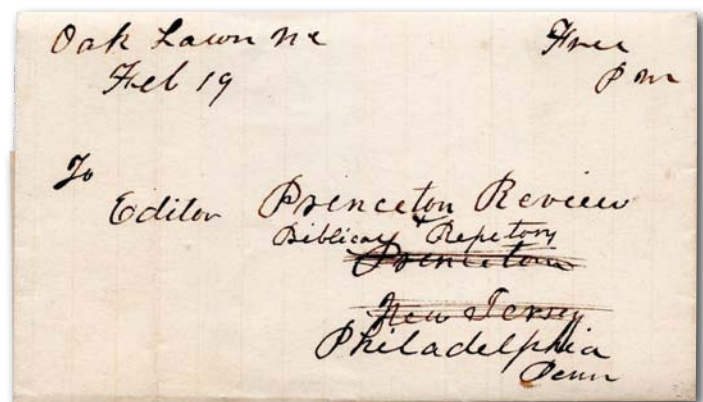 Oak Lawn NC Free
Feb 19 P M
To
Editor Princeton Review
Biblical & Repetory
Princeton
New Jersey
Philadelphia
Penn